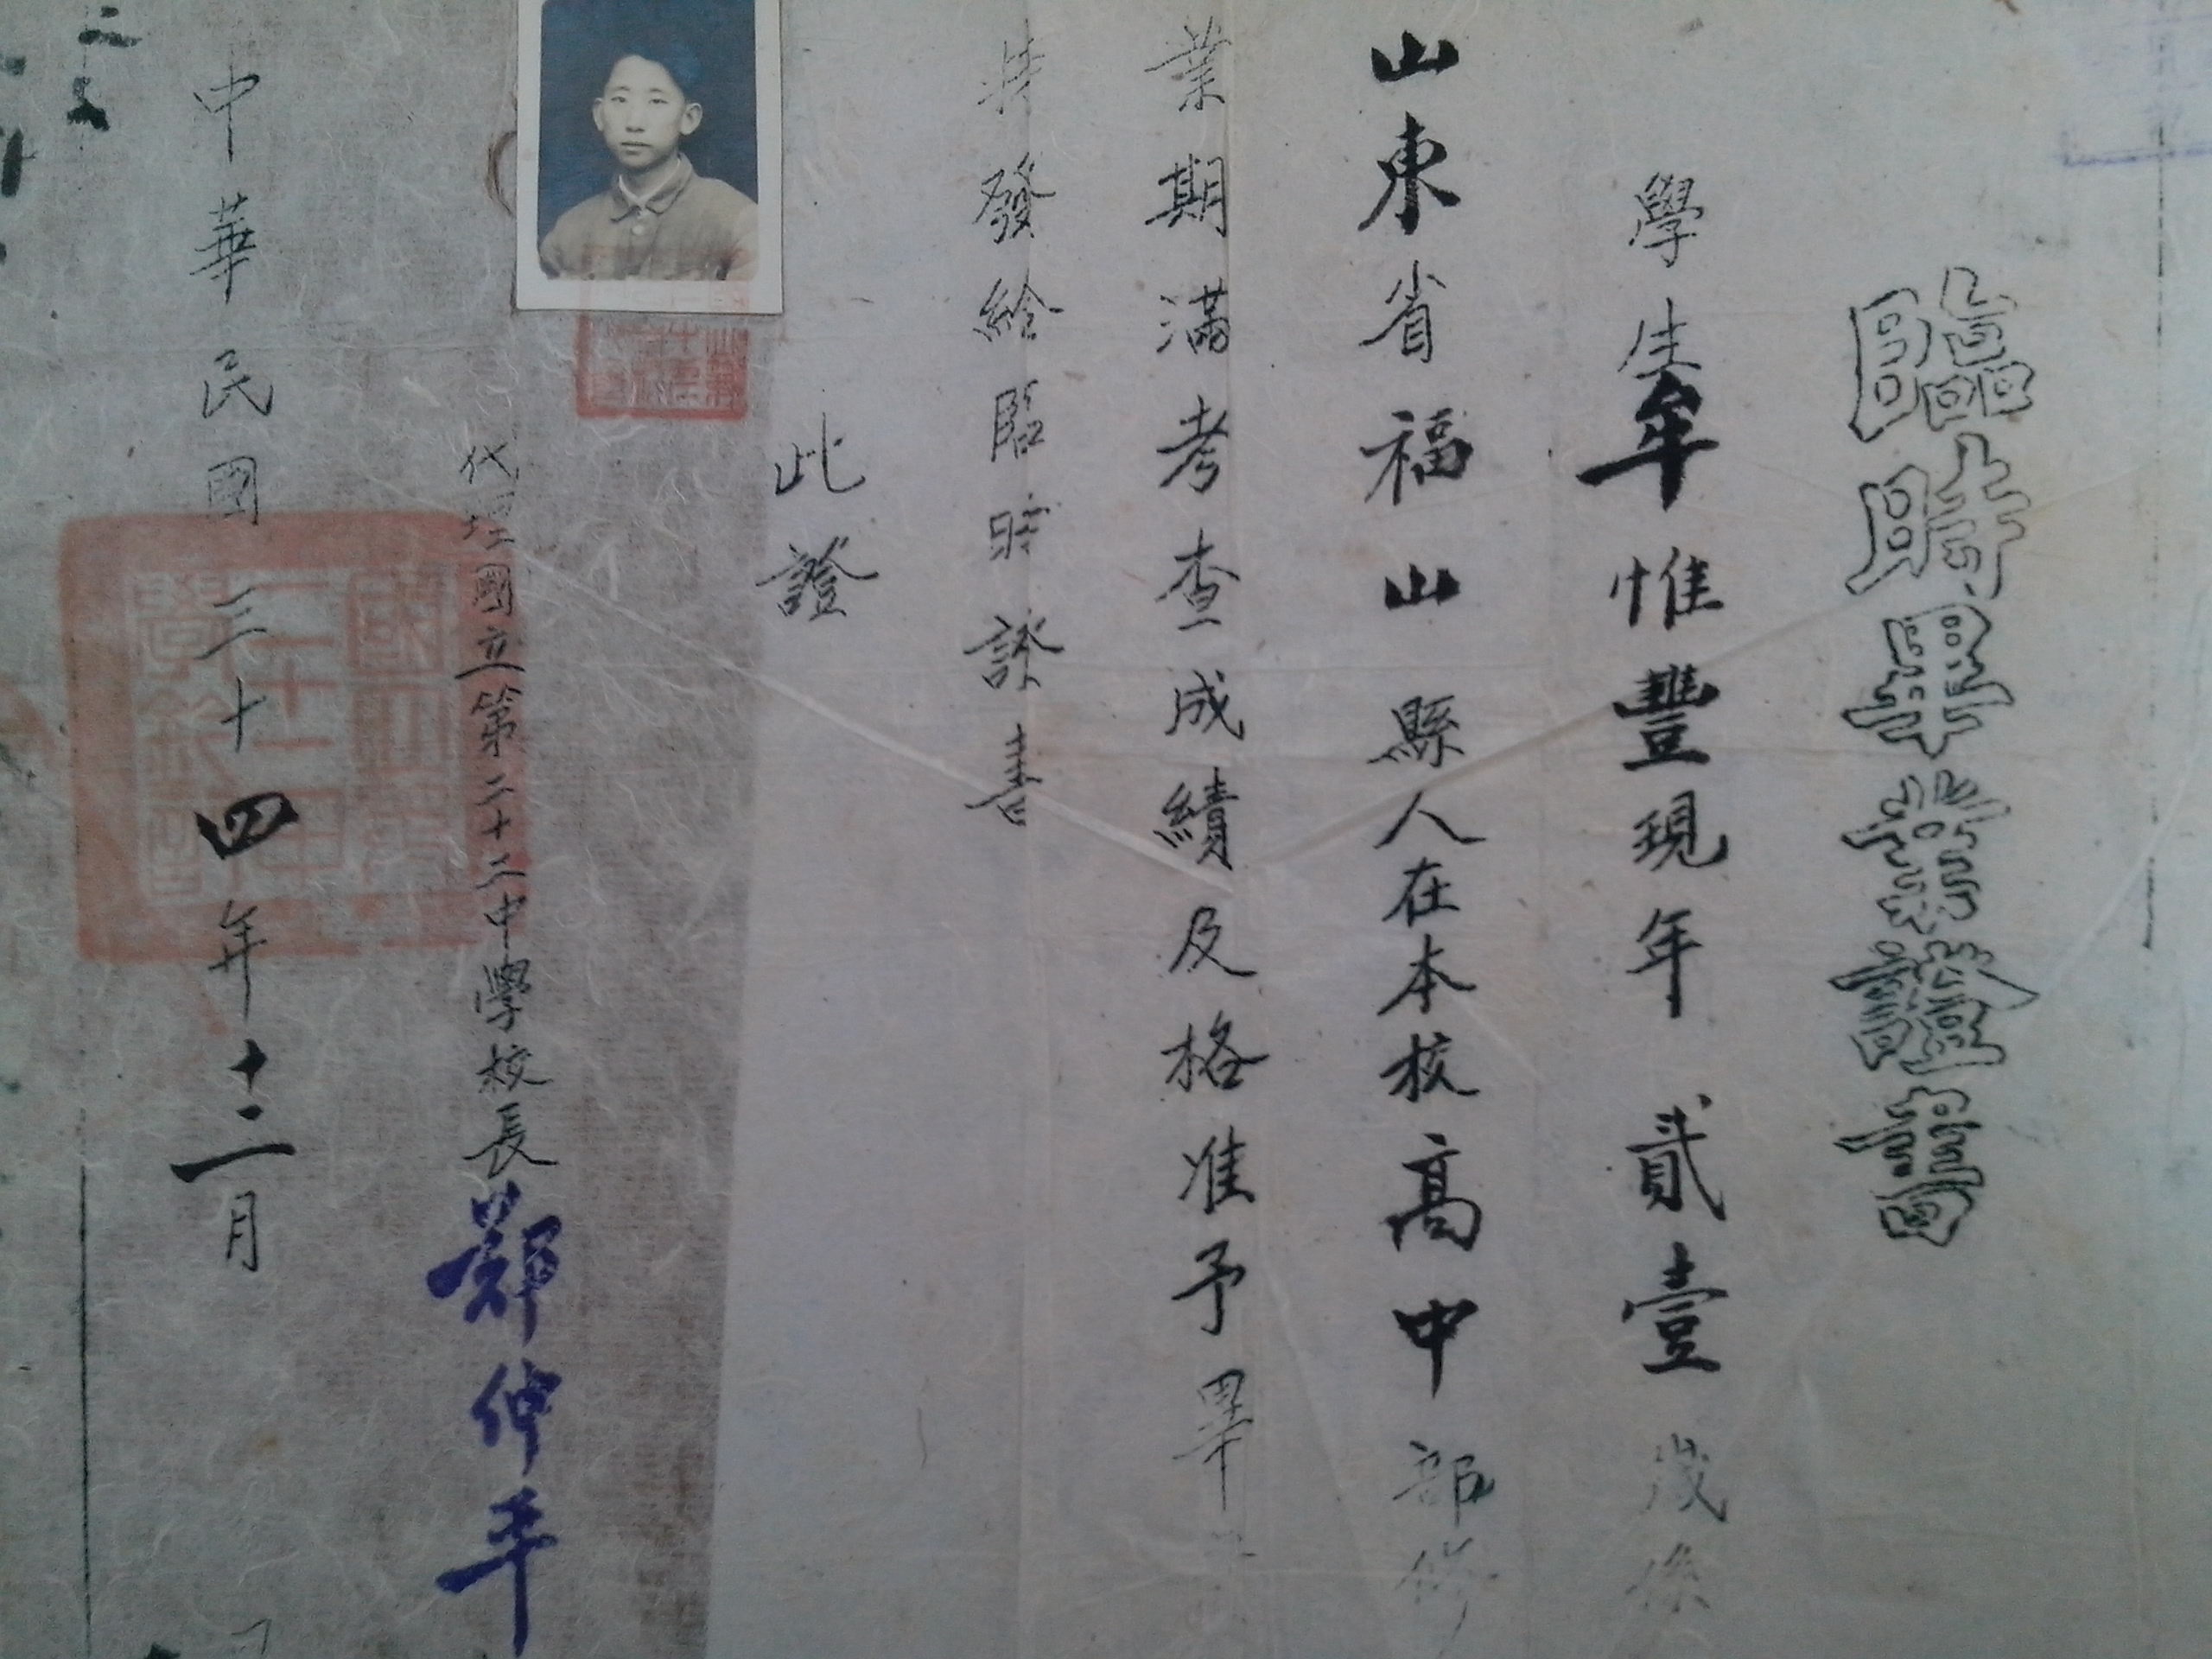 臨時畢業證書
學生牟惟豐現年貳壹歲係
山東省福山縣人在本校高中部修
業期滿考查成績及格准予畢
特發給臨時證書
此證
代理國立第二十二中學校長鄭仲平
中華民國三十四年十二月